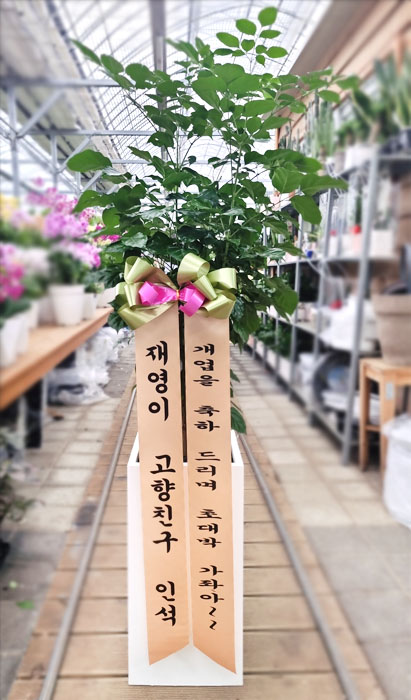 재영이 고향친구 인석
개업을 축하 드리며 초대박 가좌아~~